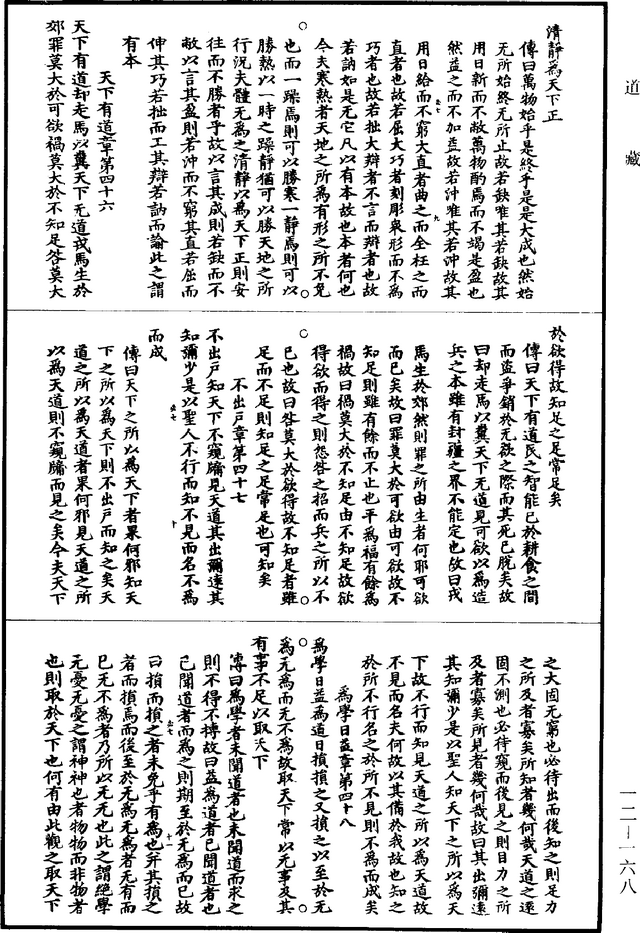 道藏
一二－一六八
清靜為天下正
傳曰萬物始乎是終乎是是大成也然始
无所始終无所止故若缺唯其若缺故其
用日新而不敝萬物酌焉而不竭是盈也
然益之而不加益故若沖唯其若沖故其
用日給而不窮大直者曲之而全枉之而
直者也故若屈大巧者刻彫衆形而不為
巧者也故若拙大辯者不言而辯者也故
若訥如是无它凡以有本故也本者何也
今夫寒熱者天地之所為有形之所不免
也而一躁焉則可以勝寒一靜焉則可以
勝熱以一時之躁靜猶可以勝天地之所
行況夫體无為之清靜以為天下正則安
往而不勝者乎故以言其成則若缺而不
敝以言其盈則若沖而不窮其直若屈而
伸其巧若拙而工其辯若訥而論此之謂
有本
天下有道章第四十六
天下有道却走馬以糞天下无道戎馬生於
郊罪莫大於可欲禍莫大於不知足咎莫大
於欲得故知足之足常足矣
傳曰天下有道民之智能已於耕食之間
而盜爭銷於无欲之際而其死已脫矣故
曰却走馬以糞天下无道見可欲以為造
兵之本雖有封疆之界不能定也故曰戎
馬生於郊然則罪之所由生者何耶可欲
而已矣故曰罪莫大於可欲由可欲故不
知足則雖有餘而不止也平為福有餘為
禍故曰禍莫大於不知足由不知足故欲
得欲而得之則怨咎之招而兵之所以不
已也故曰咎莫大於欲得故不知足者雖
足而不足則知足之足常足也可知矣
不出戶章第四十七
不出戶知天下不窺牖見天道其出彌遠其
知彌少是以聖人不行而知不見而名不為
而成
傳曰天下之所以為天下者果何邪知天
下之所以為天下則不出戶而知之矣天
道之所以為天道者果何邪見天道之所
以為天道則不窺牖而見之矣今夫天下
之大固无窮也必待出而後知之則足力
之所及者寡矣所知者幾何哉天道之遠
固不測也必待窺而後見之則目力之所
及者寡矣所見者幾何哉故曰其出彌遠
其知彌少是以聖人知天下之所以為天
下故不行而知見天道之所以為天道故
不見而名夫何故以其備於我故也知之
於所不行名之於所不見則不為而成矣
為學日益章第四十八
為學日益為道日損損之又損之以至於无
為无為而无不為故取天下常以无事及其
有事不足以取天下
傳曰為學者未聞道者也未聞道而求之
則不得不博故曰益為道者已聞道者也
已聞道者而為之則期至於无為而已故
曰損而損之者未免乎有為也并其損之
者而損焉而後至於无為无為者无有而
已无不為者乃所以无无也此之謂絕學
无憂无憂之謂神神也者物物而非物者
也則取於天下也何有由此觀之取天下